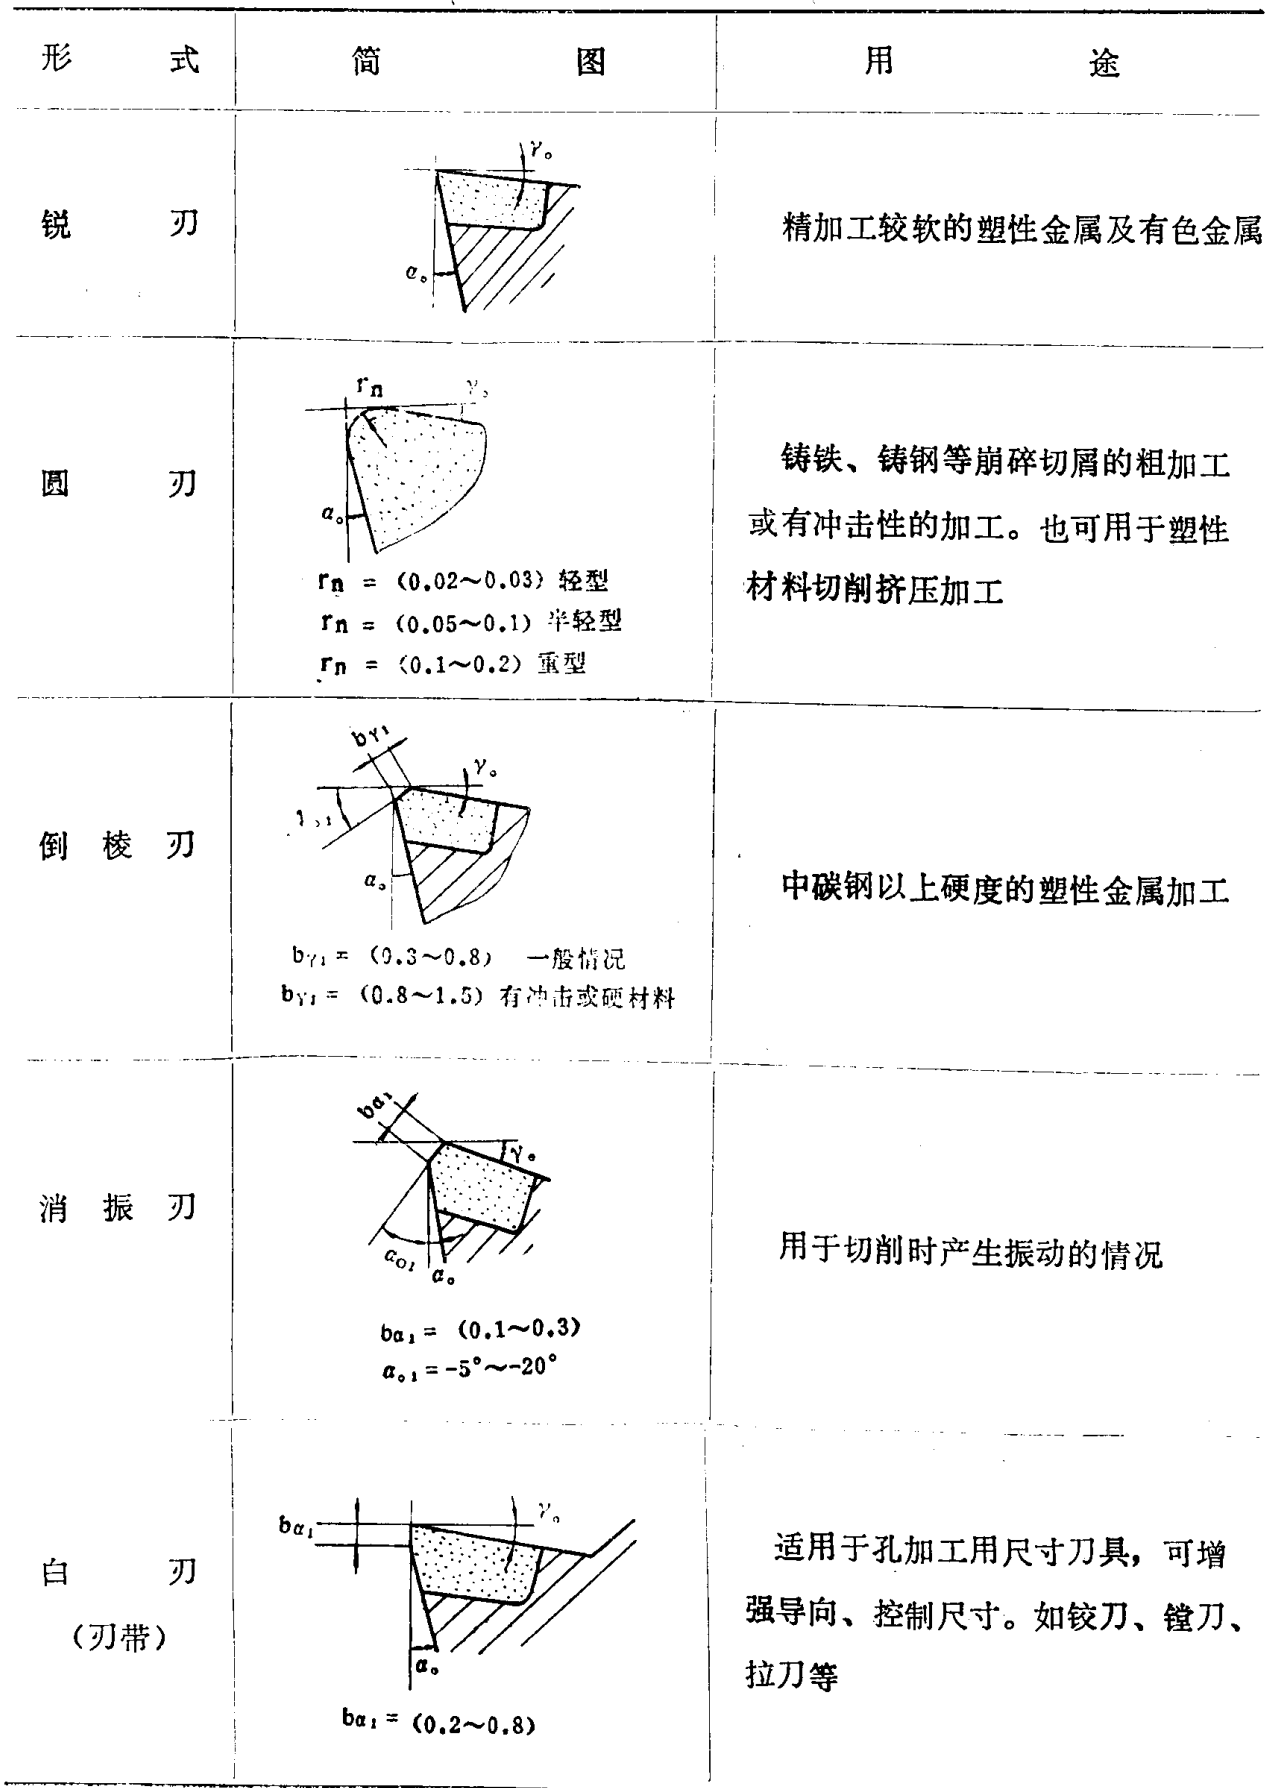 形 式 简 图 用 途
锐 刃
γₒ
αₒ
精加工较软的塑性金属及有色金属
圆 刃
rn
γₒ
αₒ
rn = (0.02～0.03) 轻型
rn = (0.05～0.1) 半轻型
rn = (0.1～0.2) 重型
铸铁、铸钢等崩碎切屑的粗加工
或有冲击性的加工。也可用于塑性
材料切削挤压加工
倒 棱 刃
bγ₁
γₒ
αₒ
bγ₁ = (0.3～0.8) 一般情况
bγ₁ = (0.8～1.5) 有冲击或硬材料
中碳钢以上硬度的塑性金属加工
消 振 刃
bα₁
γₒ
αₒ₁
αₒ
bα₁ = (0.1～0.3)
αₒ₁ = -5°～-20°
用于切削时产生振动的情况
白 刃
(刃带)
bα₁
γₒ
αₒ
bα₁ = (0.2～0.8)
适用于孔加工用尺寸刀具，可增
强导向、控制尺寸。如铰刀、镗刀、
拉刀等